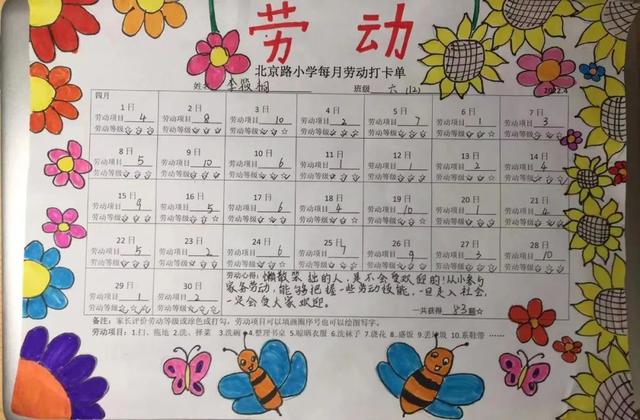 劳动
北京路小学每月劳动打卡单
姓名 李筱桐 班级 六(12) 2022.4
四月
1日 2日 3日 4日 5日 6日 7日
劳动项目 4 劳动项目 8 劳动项目 10 劳动项目 2 劳动项目 7 劳动项目 1 劳动项目 3
劳动等级☆☆☆ 劳动等级☆☆☆ 劳动等级☆☆☆ 劳动等级☆☆☆ 劳动等级☆☆☆ 劳动等级☆☆☆ 劳动等级☆☆☆
8日 9日 10日 11日 12日 13日 14日
劳动项目 5 劳动项目 10 劳动项目 6 劳动项目 1 劳动项目 1 劳动项目 2 劳动项目 4
劳动等级☆☆☆ 劳动等级☆☆☆ 劳动等级☆☆☆ 劳动等级☆☆☆ 劳动等级☆☆☆ 劳动等级☆☆☆ 劳动等级☆☆☆
15日 16日 17日 18日 19日 20日 21日
劳动项目 9 劳动项目 5 劳动项目 6 劳动项目 4 劳动项目 10 劳动项目 1 劳动项目 4
劳动等级☆☆☆ 劳动等级☆☆☆ 劳动等级☆☆☆ 劳动等级☆☆☆ 劳动等级☆☆☆ 劳动等级☆☆☆ 劳动等级☆☆☆
22日 23日 24日 25日 26日 27日 28日
劳动项目 5 劳动项目 2 劳动项目 6 劳动项目 7 劳动项目 9 劳动项目 3 劳动项目 10
劳动等级☆☆☆ 劳动等级☆☆☆ 劳动等级☆☆☆ 劳动等级☆☆☆ 劳动等级☆☆☆ 劳动等级☆☆☆ 劳动等级☆☆☆
29日 30日 劳动心得：懒散笨拙的人，是不会受欢迎的！从小参与
劳动项目 1 劳动项目 2 家务劳动，能够把握一些劳动技能，一旦走入社会，
劳动等级☆☆☆ 劳动等级☆☆☆ 一定会受大家欢迎。
一共获得 83 颗☆
备注：家长评价劳动等级或涂色或打勾，劳动项目可以填画圈序号也可以绘图写字。
劳动项目：1.扫、拖地 2.洗、择菜 3.洗碗 4.整理书桌 5.晾晒衣服 6.洗袜子 7.浇花 8.盛饭 9.丢垃圾 10.系鞋带 ……